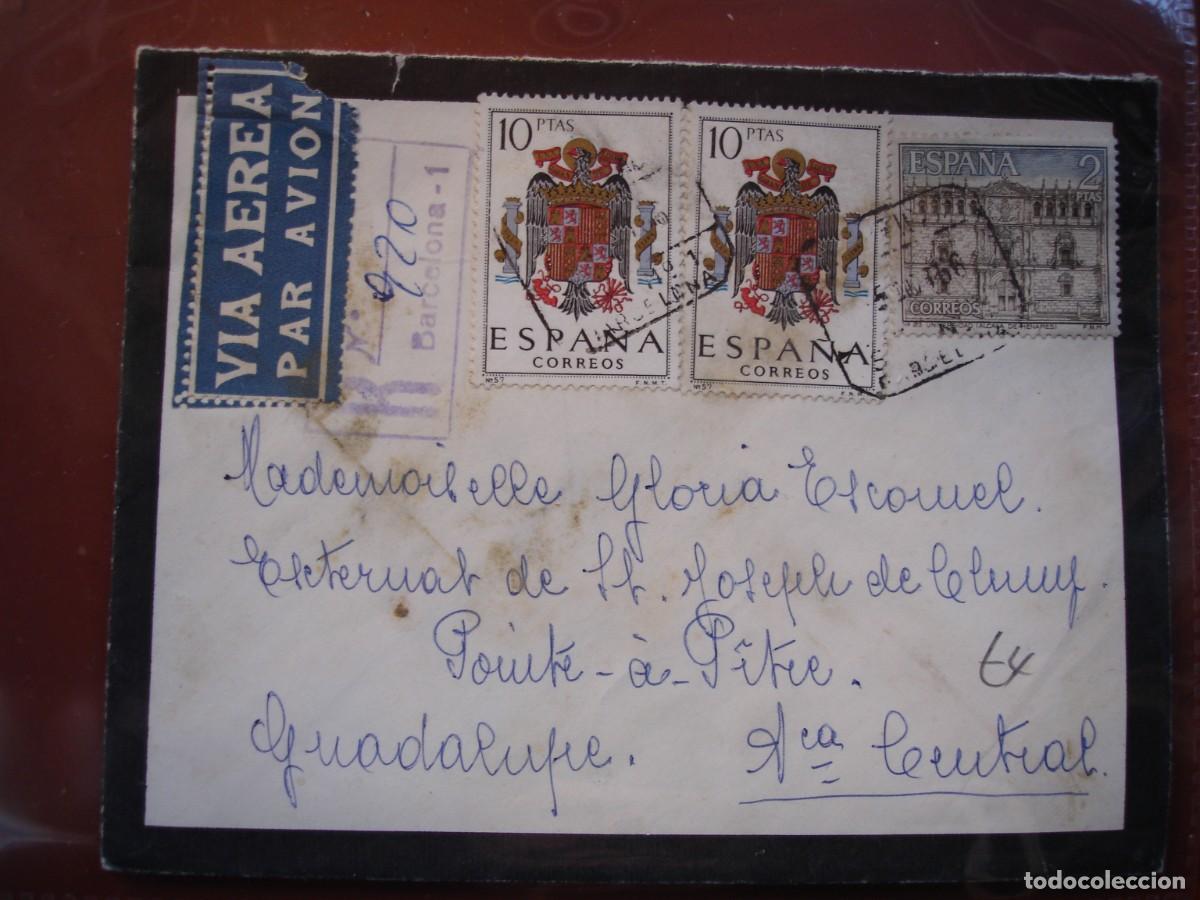 VIA AEREA
PAR AVION
R Nº 920
Barcelona-1
10 PTAS
ESPAÑA
CORREOS
Nº 57
F.N.M.T.
10 PTAS
ESPAÑA
CORREOS
Nº 57
F.N.M.T.
ESPAÑA 2
PTAS
CORREOS
UNIVERSIDAD (ALCALA DE HENARES)
F.N.M.T.
BARCELONA
Mademoiselle Gloria Escomel.
Externat de St. Joseph de Cluny.
Pointe-à-Pître.
64
Guadalupe. Aca Central.
todocoleccion